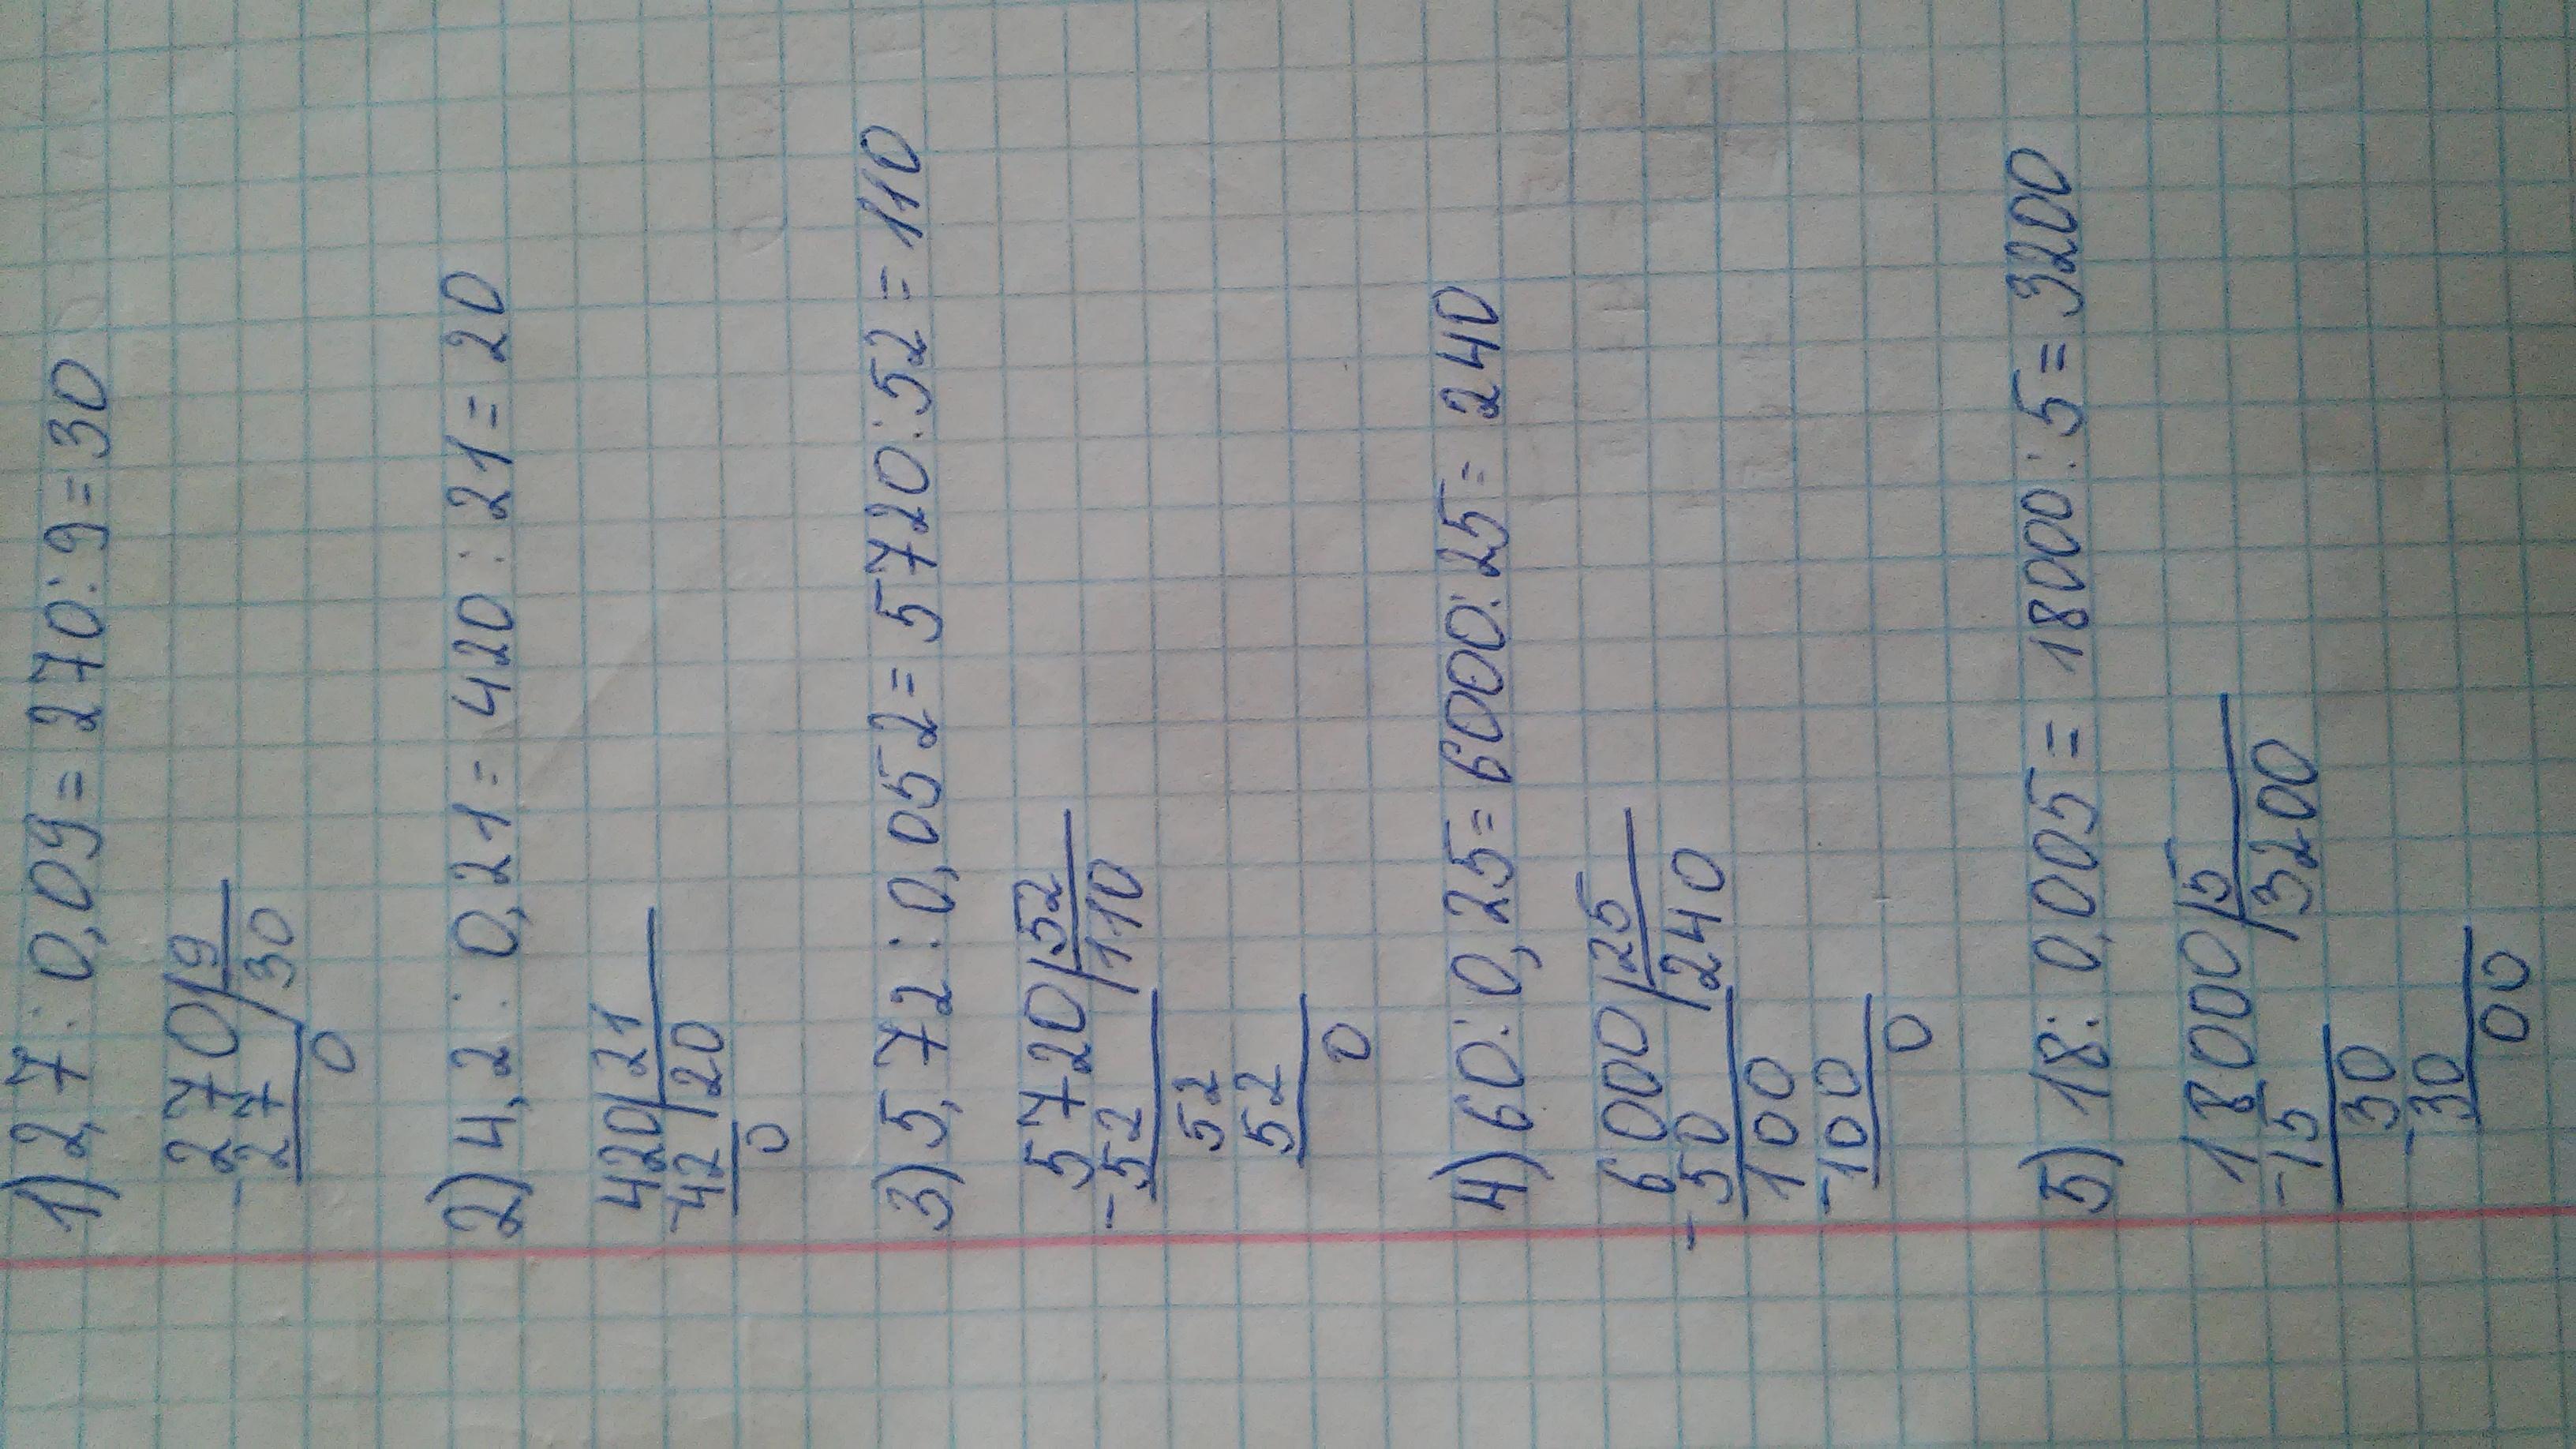 1) 2,7 : 0,09 = 270 : 9 = 30
270 | 9
- 27 | 30
0
2) 4,2 : 0,21 = 420 : 21 = 20
420 | 21
- 42 | 20
0
3) 5,72 : 0,052 = 5720 : 52 = 110
5720 | 52
- 52 | 110
52
52
0
4) 60 : 0,25 = 6000 : 25 = 240
6000 | 25
- 50 | 240
100
- 100
0
5) 18 : 0,005 = 18000 : 5 = 3200
18000 | 5
- 15 | 3200
30
- 30
00